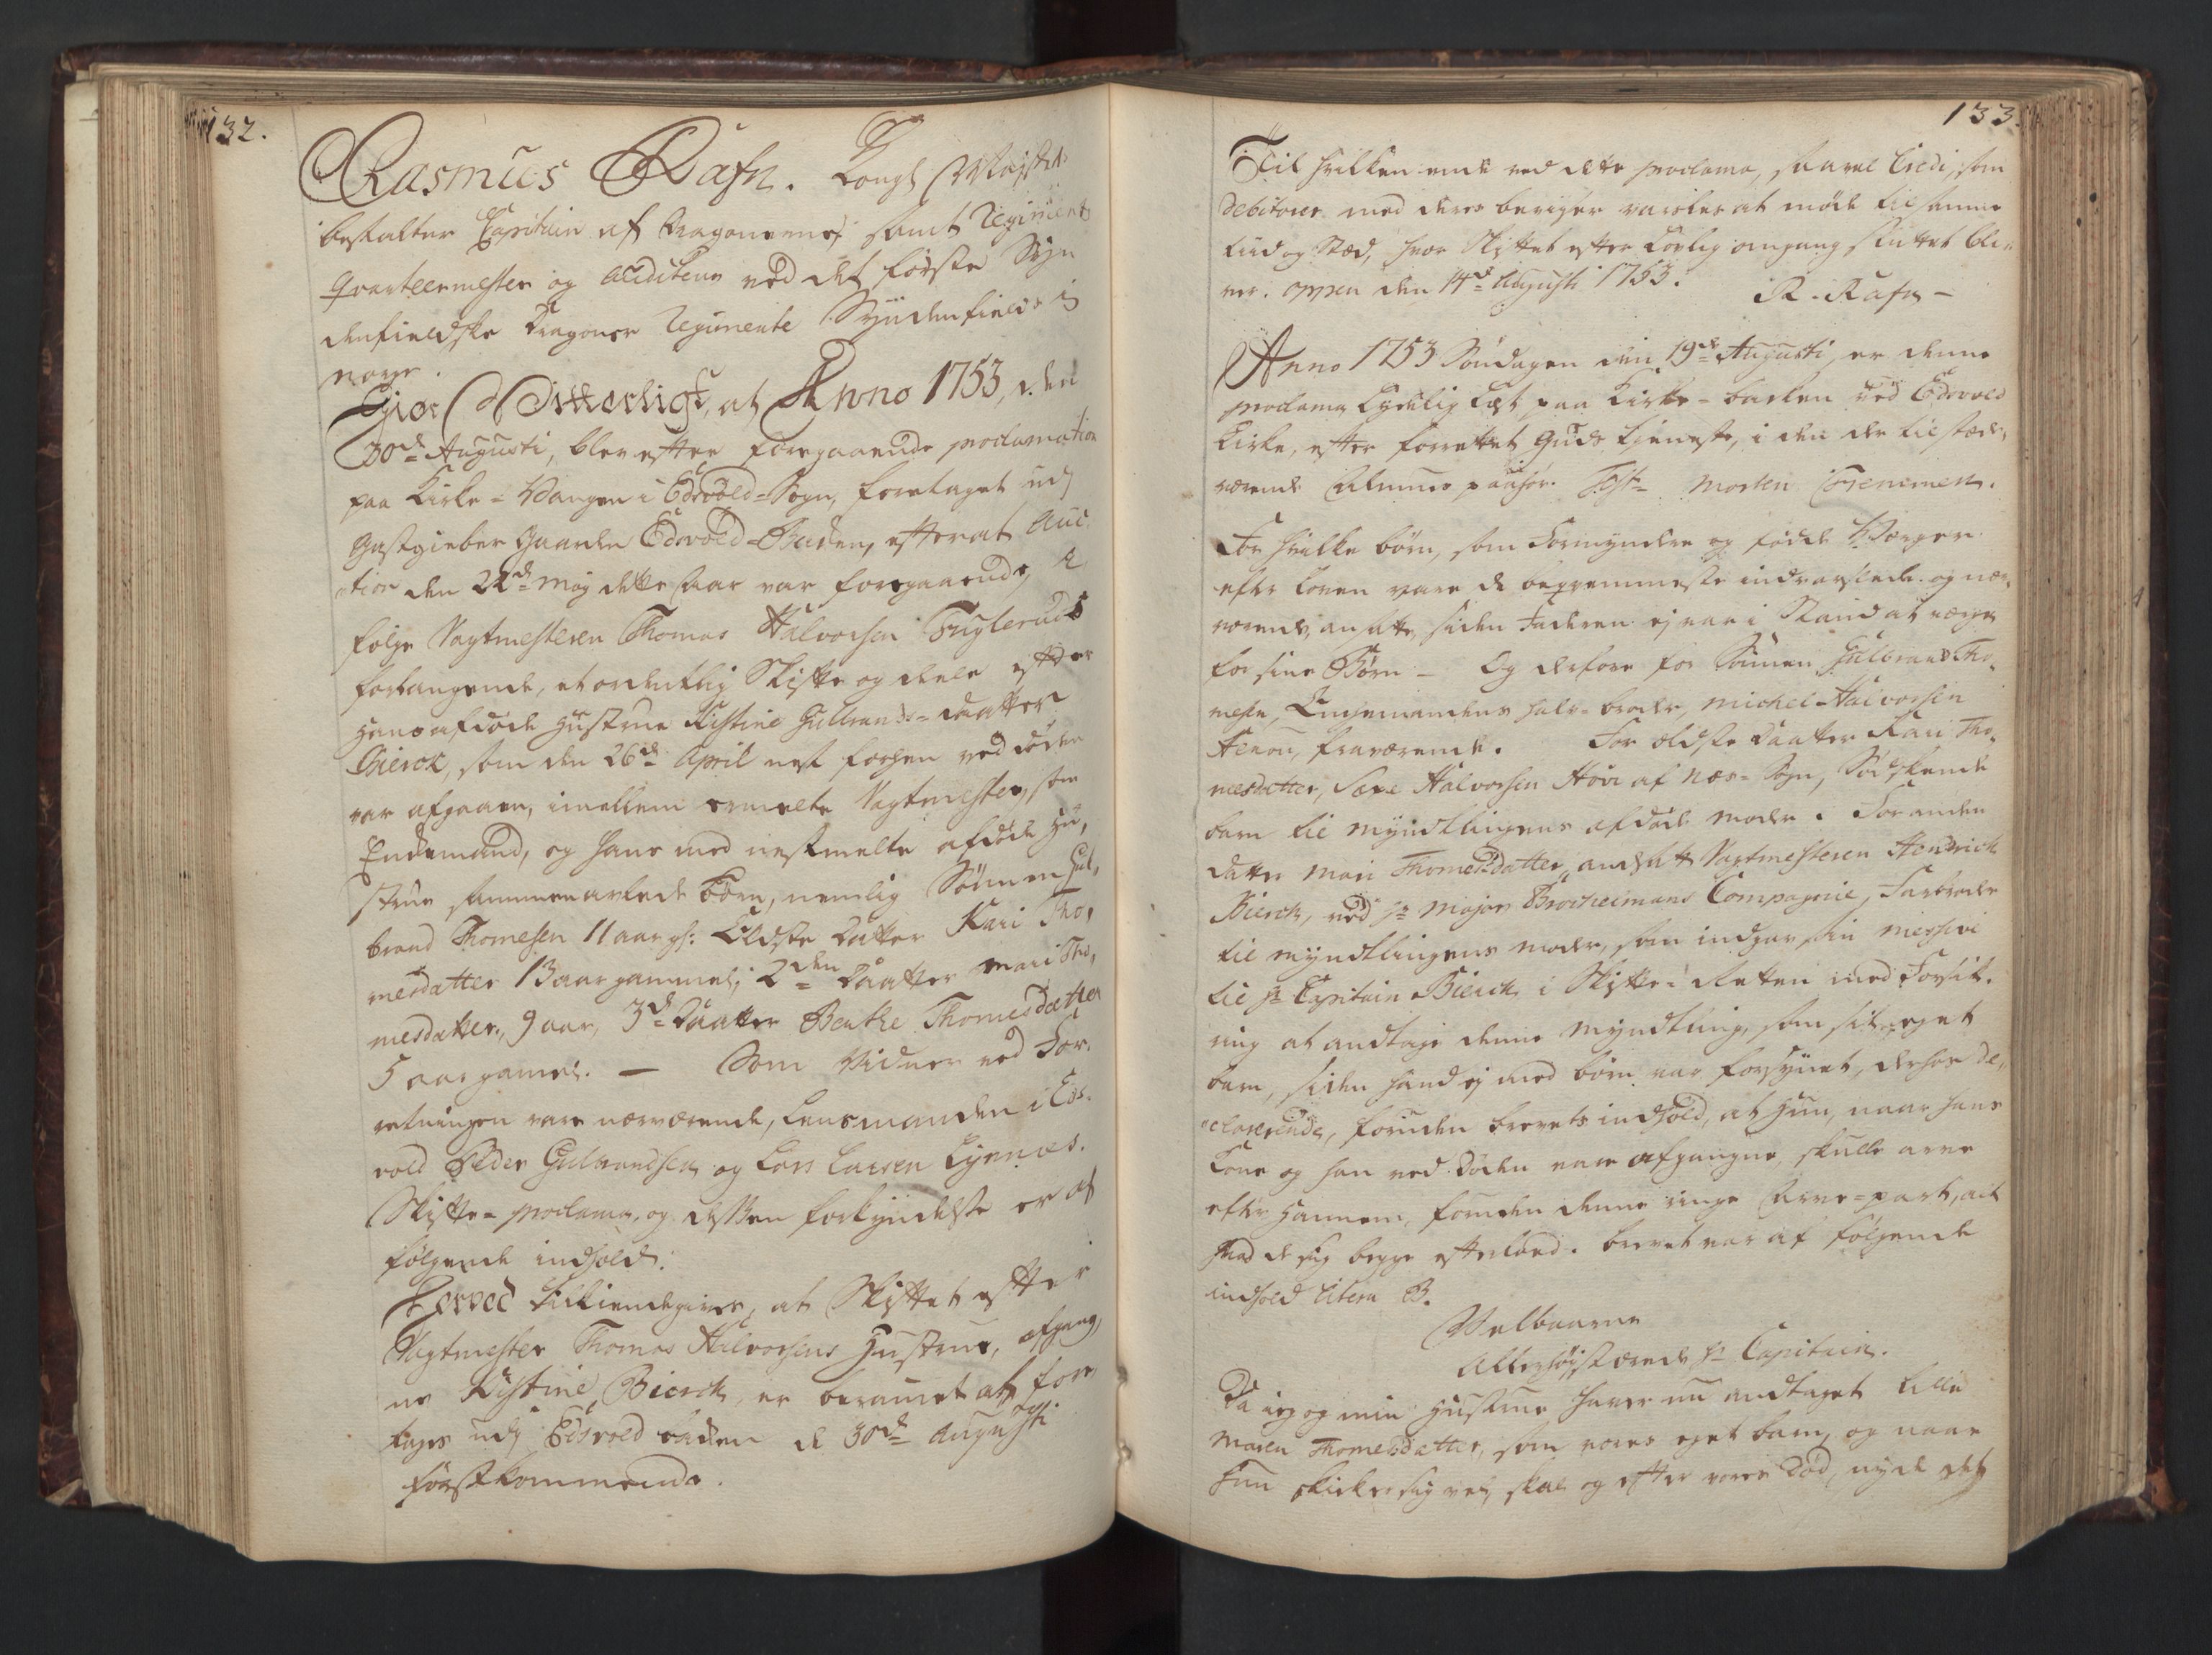 132.
Rasmus Rafn. Kongl Mayst:
bestalter Capitain af Dragonerne, samt Regiments
Qvarteermester og Auditeur ved det første Syn
denfieldske Dragoner Regimente Syndenfields i
Norge.
Giør Witterligt, at Anno 1753, den
30de Augusti, blev efter foregaaende proclamation
paa Kirke-Vangen i Edsvold-Sogn, foretaget udj
Gastgieber Gaarden Edsvold-Bakken, efter at Auc-
tion den 22de Maj dette Aar var foregaaende,
følge Vagtmesteren Thomas Halvorsen Fuglerud
forlangende, et ordentlig Skifte og deele efter
Hans afdøde Hustrue Kistine Gulbrands-daatter
Bierck, som den 26de April nest forhen ved døden
var afgaaen, imellem ermelte Vagtmester, som
Enkemand, og hans med nestmelte afdøde Hu,
strue sammenavlede Børn, nemlig Sønnen Gul,
brand Thomesen 11 aar gl: Eldste Datter Kari Tho,
mesdatter 13 aar gammel; 2den Daatter Mari Tho,
mesdatter, 9 aar, 3de Daatter Benthe Thomesdatter
5 aar gamel. — Som Vidner ved For-
retningen vare nærværende, Lensmanden i Eds-
vold Peder Gulbrandsen og Lars Larsen Lynnes.
Skifte-proclama, og dessen forkyndelse er af
følgende indhold:
Herved Tilkiendegives, at Skiftet efter
Vagtmester Thomas Halvorsens Hustrue, afgang,
ne Kistine Bierck, er beramet at fore,
tages udj Edsvold bakken d 30de Augusti
førstkommende.
133.
Til hvilken ende ved dette proclama, saavel Credi, som
Debitorer med deres beviser varsles at møde til samme
tiid og Stæd, hvor Skiftet efter Lovlig omgang sluttet bli-
ver. Oppen den 14de Augusti 1753. R. Rafn —
Anno 1753 Søndagen den 19de Augusti, er denne
proclama Lydelig Læst paa Kirke-bakken ved Edsvold
Kirke, efter forrettet Guds tieneste, i den der tilstæde,
værende Almues paahør. Test: Morten
For hvilke børn, som Formyndere og fødde Værger
efter Loven vare de beqvemmeste indvarslede og nær,
værende ansatte, siden Faderen ej var i Stand at værge
for sine Børn — Og derfore for Sønnen Gulbrand Tho,
mesen, Enkemandens halv-broder, Michel Halvorsen
fraværende. For eldste Daatter Kari Tho,
mesdatter, Halvorsen Hove af Næs-Sogn, Sødskende
barn til myndtlingens afdøde moder. For anden
datter Mari Thomesdatter, andsatt Vagtmesteren Hendrick
Bierck, ved Hr Major Brocheimans Compagnie, Farbroder
til myndtlingens moder, som indgav sin Missive
til Hr Capitain Bierck, i Skifte-Retten med Forsik-
ring at andtage denne Myndtling, som sit eget
barn, siden hand ej med børn var forsynet, derhos de,,
clarerende, foruden brevets indhold, at Hun, naar hans
Kone og han ved Døden vare afgangne, skulle arve
efter Hannem, foruden denne ringe Arve-part, alt
hvad de sig begge efterlod. Brevet var af følgende
indhold Litera B.
Velbaarne
Allerhøjstærede Hr Capitain.
Da ieg og min Hustrue haver nu andtaget lille
Maren Thomesdatter, som vores eget barn, og naar
hun skicker sig vel, skal og efter vores Død, nyde det